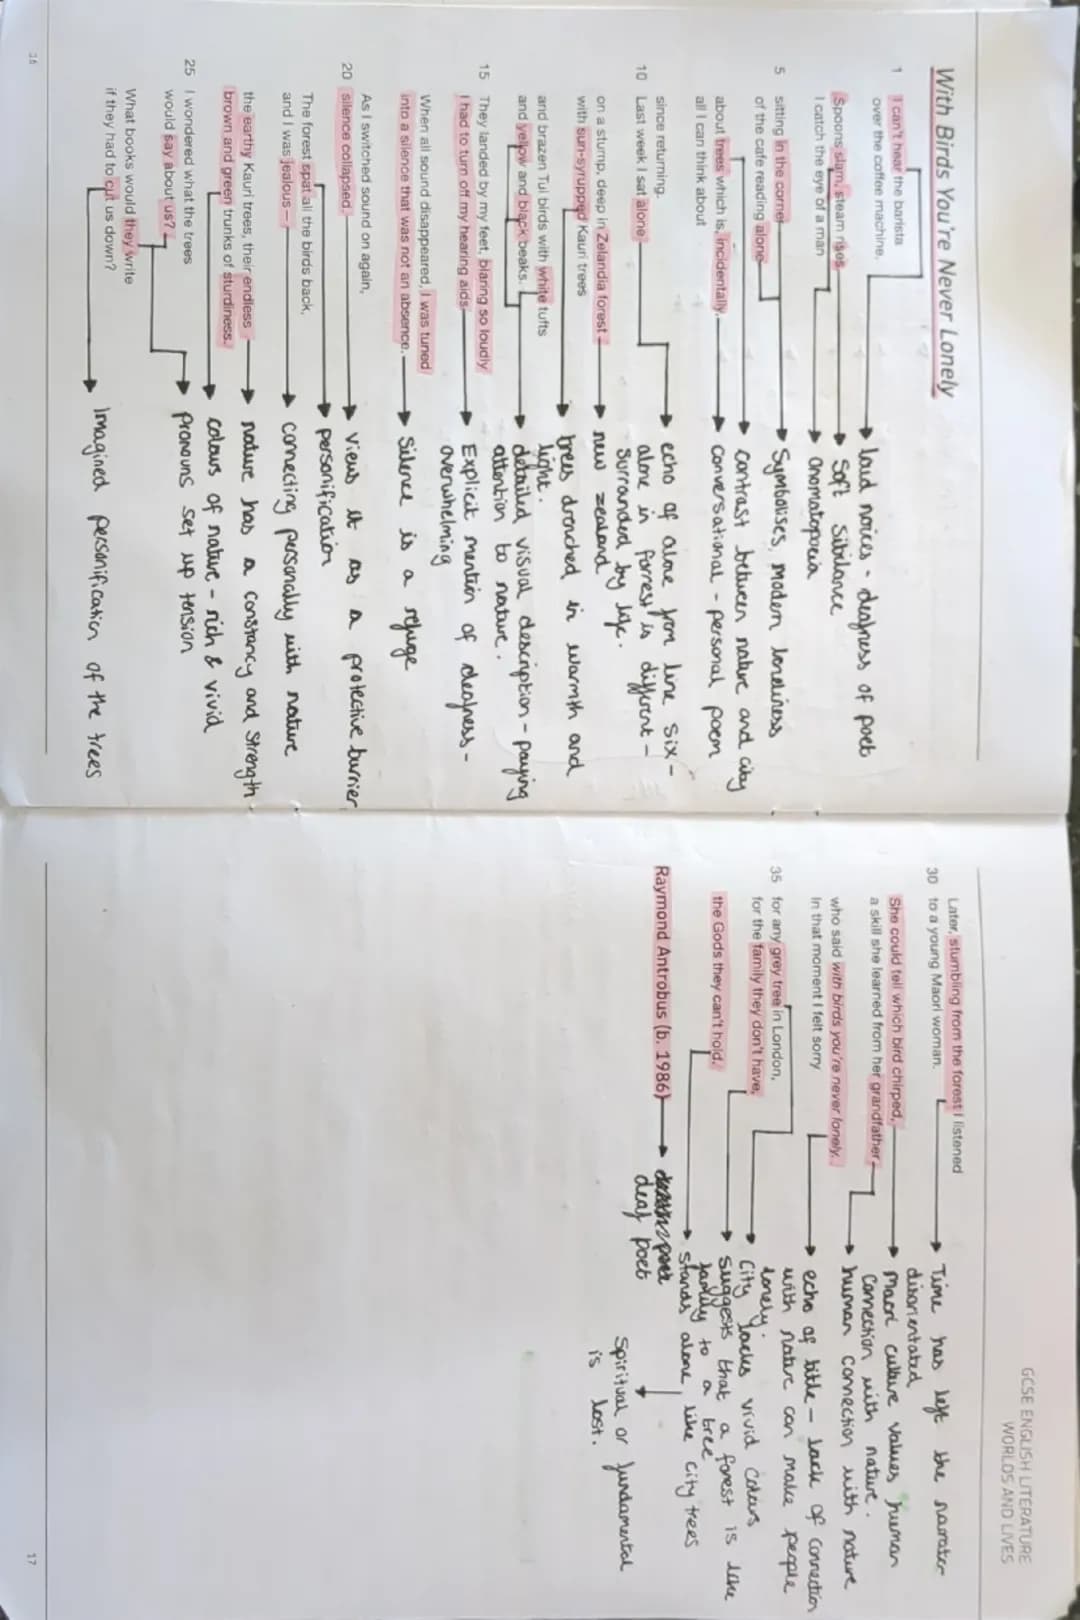 With Birds You're Never Lonely
1 I can't hear the barista
over the coffee machine.
Spoons slam, steam rises.
I catch the eye of a man
5 sitting in the corner
of the cafe reading alone
about trees which is, incidentally,
all I can think about
since returning.
10 Last week I sat alone
on a stump, deep in Zelandia forest
with sun-syrupped Kauri trees
and brazen Tui birds with white tufts
and yellow and black beaks.
15 They landed by my feet, blaring so loudly
I had to turn off my hearing aids.
When all sound disappeared, I was tuned
into a silence that was not an absence.
As I switched sound on again,
20 silence collapsed.
The forest spat all the birds back,
and I was jealous –
the earthy Kauri trees, their endless
brown and green trunks of sturdiness.
25 I wondered what the trees
would say about us?
What books would they write
if they had to cut us down?
loud noices - deafness of poet
Soft Sibilance
onomatopoeia
Symbolises, modern loneliness
contrast between nature and city
conversational - personal poem
echo of alone from line six -
alone in forrest is different -
Surrounded by life.
new zealand
trees drenched in warmth and
light.
detailed visual description - paying
attention to nature.
Explicit mention of deafness -
overwhelming
Silence is a refuge
views it as a protective burrier
personification
connecting personally with nature
nature has a constancy and strength
colours of nature - rich & vivid
pronouns set up tension
Imagined personification of the trees
16
GCSE ENGLISH LITERATURE
WORLDS AND LIVES
Later, stumbling from the forest I listened
30 to a young Maori woman.
She could tell which bird chirped,
a skill she learned from her grandfather
who said with birds you're never lonely.
In that moment I felt sorry
35 for any grey tree in London,
for the family they don't have,
the Gods they can't hold.
Raymond Antrobus (b. 1986)
Time has left the narrator
disorientated
Maori culture values human
connection with nature.
human connection with nature
echo of title - lack of connection
with nature can make people
lonely.
City lacks vivid colours
Suggests that a forest is like
family to a tree
stands alone, like city trees
deaf poet
Spiritual or fundamental
is lost.
17